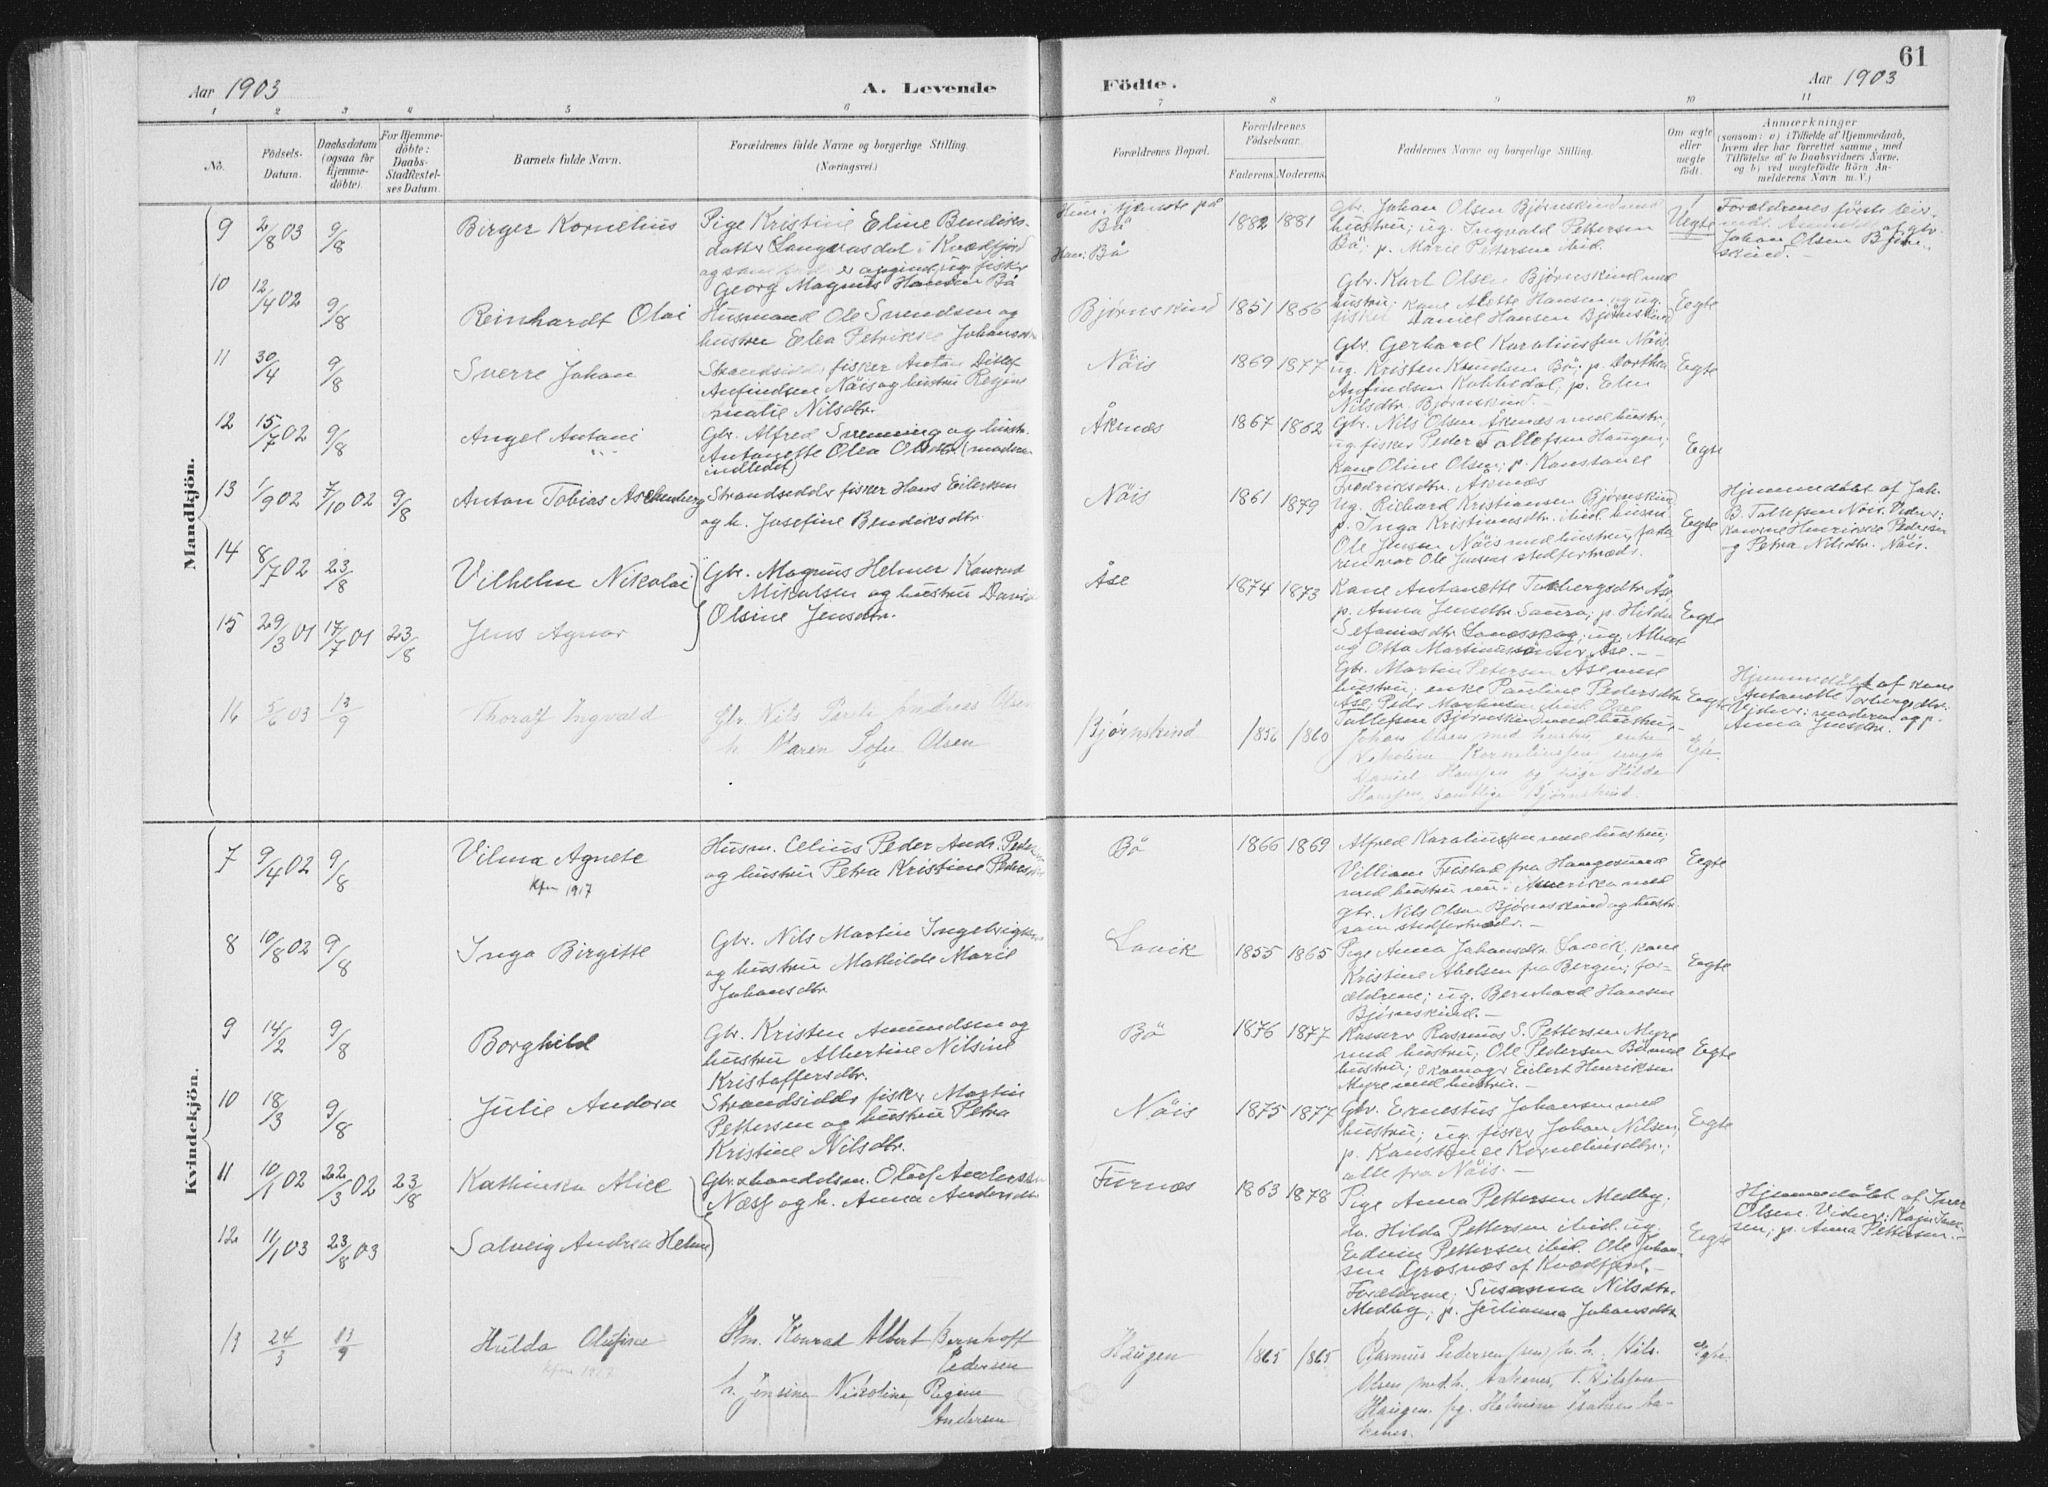 61
Aar 1903
A. Levende
Födte.
Aar 1903
1 2 3 4 5 6 7 8 9 10 11
No.
Födsels-
Datum.
Daabsdatum
(ogsaa for
Hjemme-
döbte).
For Hjemme-
döbte:
Daabs-
Stadfæstel-
ses Datum.
Barnets fulde Navn.
Forældrenes fulde Navne og borgerlige Stilling.
(Næringsvei.)
Forældrenes Bopæl.
Forældrenes
Födselsaar.
Faderens. Moderens.
Faddernes Navne og borgerlige Stilling.
Om ægte
eller
uægte
födt.
Anmærkninger
(saasom: a) i Tilfælde af Hjemmedaab,
hvem der har forrettet samme, med
Tilföielse af to Daabsvidners Navne,
og b) ved uægtefödte Börn An-
melderens Navn m. V.)
Mandkjön.
9 2/8 03 9/8 Birger Kornelius
Pige Kristine Eline Bendiks-
datter Langvasdal i Kvæfjord
Georg Magnus Hansen Bö
Bö
Han: Bö
1882 1881
Gbr. Johan Olsen Björnskind med
hustru; ug. Ingvald Pettersen
Bö; p. Marie Petersen ibid.
Uegte
Forældrenes förste leir-
Johan Olsen Björn-
skind.
10 12/4 02 9/8 Reinhardt Olai
Husmand Ole Svendsen og
hustru Elea Petrikke Johansdtr
Bjørnskind 1851 1866
Gbr. Karl Olsen Bjørnskind med
hustru; kone Alette Hansen og ug.
fisker Daniel Hansen Bjørnskind
Egte
11 30/4 9/8 Sverre Johan
Strandsidder fisker Anton Ditlef
Anfindsen Nöis og hustru Regine
Nilsdtr.
Nöis 1869 1877
Gbr. Gerhard Karoliussen Nöis.
ug. Kristen Knudsen Bö; p. Dorthea
Anfindsen Kobbedal, p. Elen
Nilsdtr. Bjørnskind.
Egte
12 15/7 02 9/8 Angel Antoni
Gbr. Alfred Svenning og hustr.
Antonette Olea Olsdtr (moderen
indledet)
Åknæs 1867 1862
Gbr. Nils Olsen Åknæs med hustr.,
ug fisker Peder Tollefsen Haugen;
Kone Oline Olsen; p. Konstance
Fredriksdtr. Åknæs
Egte
13 1/9 02 7/10 02 9/8 Anton Tobias Aschenberg
Strandsidder fisker Hans Eilersen
og h. Josefine Bendiksdtr.
Nöis 1861 1879
ug. Richard Kristiansen Björnskind
p. Inga Kristiansdtr. ibid.
Ole Jensen Nöis med hustru,
ren var Ole Jensens stedfortræder.
Egte
Hjemmedöbt af Joh.
B. Tollefsen Nöis. Vidner:
konerne Henrikke Pedersen
og Petra Nilsdtr. Nöis.
14 8/7 02 23/8 Vilhelm Nikolai
Gbr. Magnus Helmer Konrad
Mikalsen og hustru
Olsine Jensdtr.
Åse 1874 1873
Kone Antonette Torbergsdtr Åse
p. Anna Jensdtr Saura; p. Hilda
Stefaniasdtr Lanesskog; ug. Albert
og Otto Martinussönner Åse.
Egte
15 29/3 01 17/7 01 23/8 Jens Agnar
Gbr. Martin Petersen Åse med
hustru; enke Pauline Pedersdtr
Åse; Peder Martinsen ibid. Ole
Tollefsen Bjørnskind med hustru,
Egte
Hjemmedöbt af kone
Antonette Torbergsdtr.
Vidner: moderen og p.
Anna Jensdtr.
16 5/6 03 13/9 Thoralf Ingvald
Gbr. Nils Pareli Andreas Olsen
h. Maren Sofie Olsen
Bjørnskind 1856 1860
Johan Olsen med hustru, enke
Korneliussen, ungk
Daniel Hansen og pige Hilda
Hansen, samtlige Bjørnskind.
Egte
Kvindekjön.
7 9/4 02 9/8 Vilma Agnete
Kfm 1917
Husm. Celius Peder Andr. Peder
og hustru Petra Kristine Peders
Bö 1866 1869
Alfred Karoliussen med hustru;
Villiam Frostad fra Haugesund
med hustru nu i Amerika med
gbr. Nils Olsen Bjørnskind og hustr.
som stedfortræder.
Egte
8 10/8 02 9/8 Inga Birgitte
Gbr. Nils Martin Ingebrigtsen
og hustru Mathilde Marie
Johansdtr
Lovik 1855 1865
Pige Anna Johansdtr Lovik, kone
Kristine Abelsen fra Bergen; for-
ældrene; ug. Bernhard Hansen
Bjørnskind.
Egte
9 14/2 9/8 Borghild
Gbr. Kristen Amundsen og
hustru Albertine Nilsine
Kristoffersdtr.
Bö 1876 1877
Rasmus S. Pettersen Myre
med hustru; Ole Pedersen Bö med
hustru; Skomager Eilert Henriksen
Myre med hustru.
Egte
10 18/3 9/8 Julie Andora
Strandsidder fisker Martin
Pettersen og hustru Petra
Kristine Nilsdtr.
Nöis 1875 1877
Gbr. Ernestus Johansen med
hustru; ug. fisker Johan Nilsen,
p. Konstance Korneliusdtr.;
alle fra Nöis.
Egte
11 10/1 02 22/3 02 23/8 Kathinka Alice
Gbr. & handelsm. Olaf Andersen
Næss og h. Anna Andersen
Furnæs 1863 1878
Pige Anna Pettersen Medby;
do. Hilda Pettersen ibid. ug.
Edvin Pettersen ibid. Ole Johan-
sen Grosnæs af Kvædfjord.
Hjemmedöbt af Iver
Olsen. Vidner: Kaja Iver-
sen; p. Anna Pettersen.
12 11/1 03 23/8 03 Solveig Andrea Helene
Egte
Forældrene; Susanna Nilsdtr.
Medby; p. Julianna Johansdtr
13 24/3 13/9 Hulda Olufine
Kfm 1917
Hm. Konrad Albert Bernhoff
Pedersen
h. Jensine Nikoline Regine
Andersen
Haugen 1865 1865
Rasmus Pedersen (sen) m. h., Nils
Olsen med h., Aaknes, T. Nilssen
Haugen, pg. Helmine Isaksen Aa-
kenes.
Egte